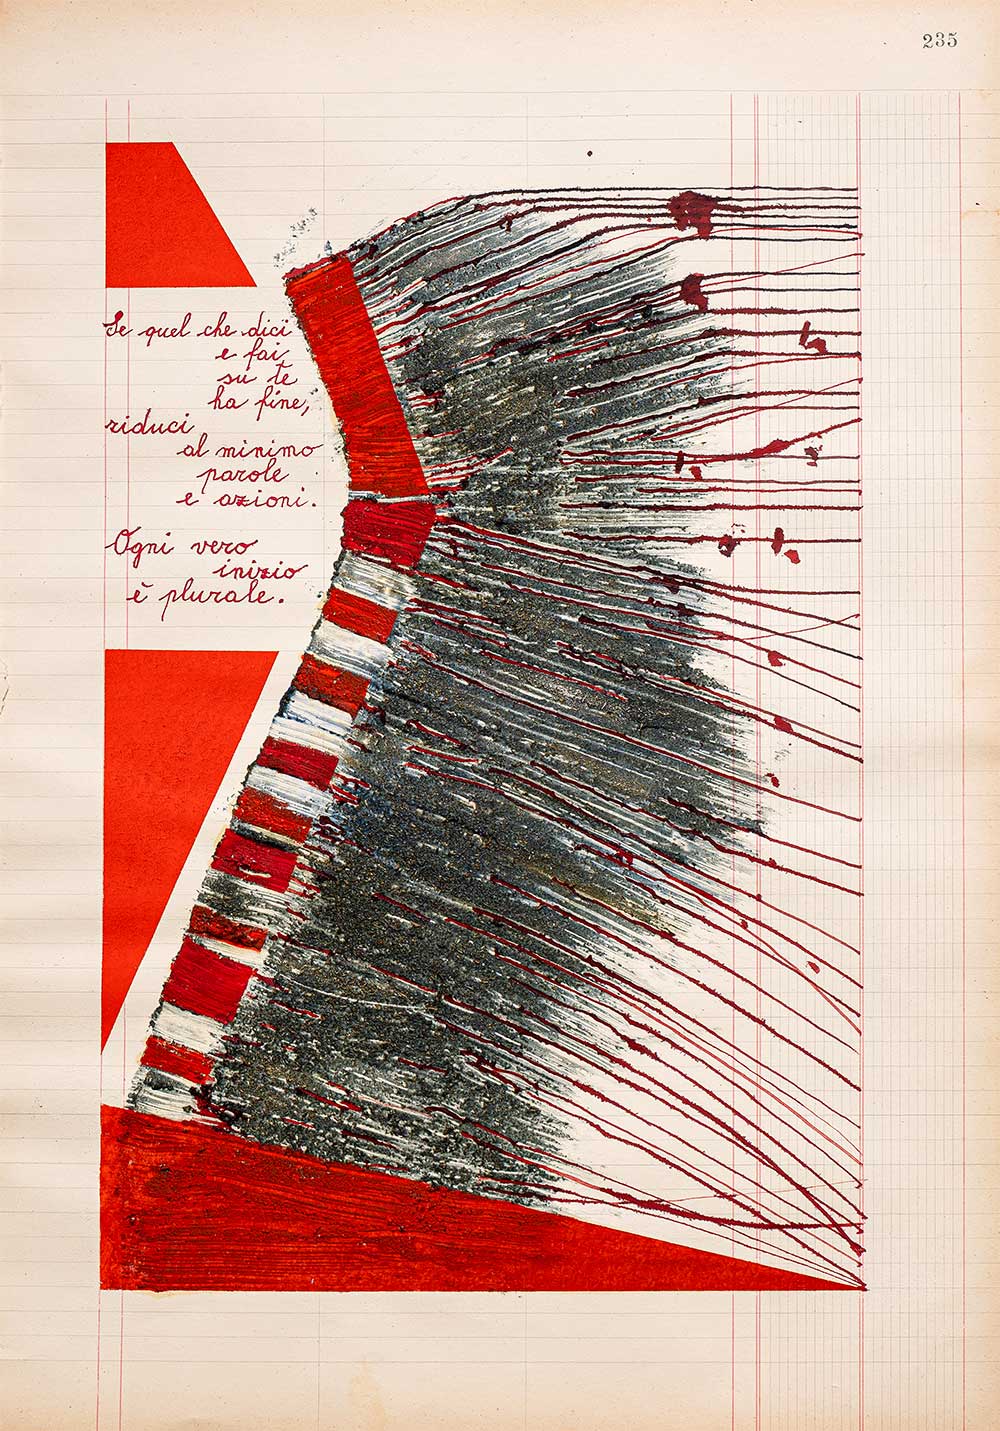 235
Se quel che dici
e fai
su te
ha fine,
riduci
al minimo
parole
e azioni.
Ogni vero
inizio
è plurale.